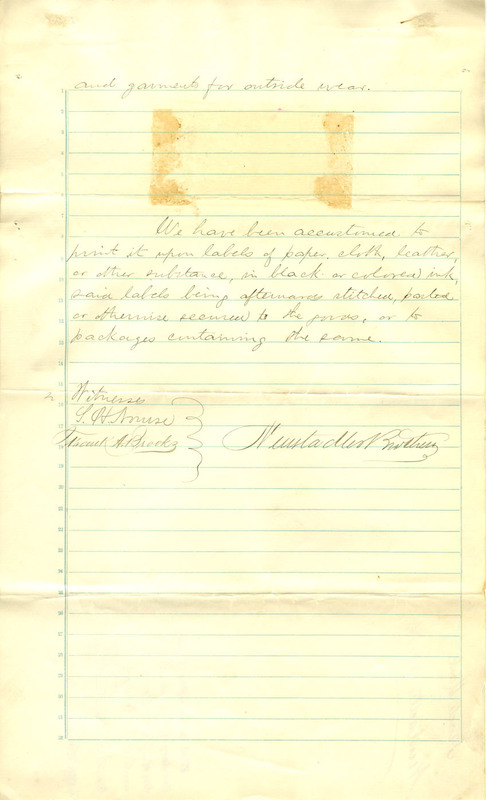 and garments for outside wear.
We have been accustomed to
print it upon labels of paper, cloth, leather,
or other substance, in black or colored ink,
said labels being afterwards stitched, pasted
or otherwise secured to the goods, or to
packages containing the same.
Witnesses
S. H. Nourse
A. Brooks
Neustadter Brothers